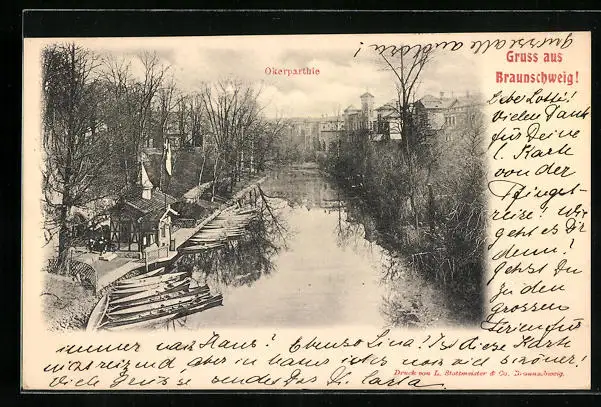 Gruss aus
Braunschweig!
Okerparthie
Liebe Lotti!
Vielen Dank
für Deine
l. Karte
von der
Pfingst
reise. Wie
geht es Dir
denn?
Gehst Du
zu den
grossen
Ferien für
immer nach Haus? Ebenso Lina? Ist diese Karte
nicht reizend aber in hans ist es noch viel schöner!
Viele Grüsse sendet Dir
Grüsse alle andern
Druck von L. Stottmeister & Co. Braunschweig.